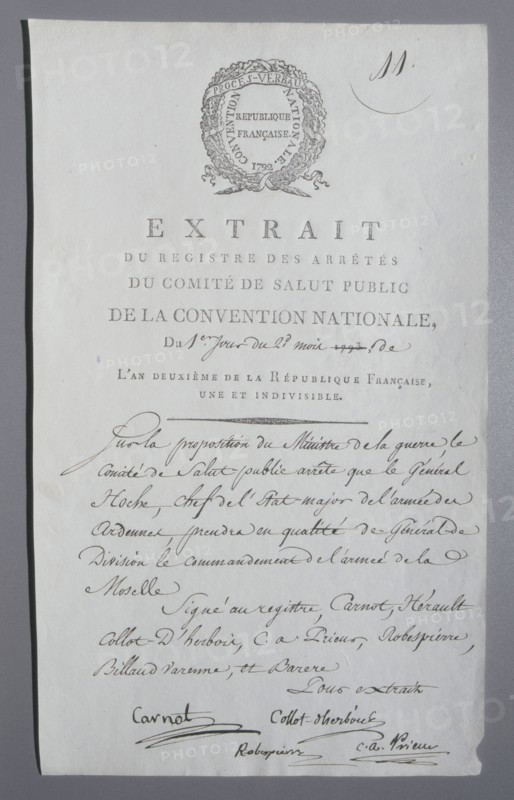 11.
PROCES-VERBAUX
CONVENTION NATIONALE.
REPUBLIQUE
FRANÇAISE.
1792
EXTRAIT
DU REGISTRE DES ARRÊTÉS
DU COMITÉ DE SALUT PUBLIC
DE LA CONVENTION NATIONALE,
Du 1er Jour du 2d mois 1793, de
L'AN DEUXIÈME DE LA RÉPUBLIQUE FRANÇAISE,
UNE ET INDIVISIBLE.
Sur la proposition du Ministre de la guerre, le
Comité de Salut public arrête que le Général
Hoche, chef de l'Etat-major de l'armée des
Ardennes, prendra en qualité de Général de
Division le commandement de l'armée de la
Moselle
Signé au registre, Carnot, Hérault
Collot-D'herbois, C. a Prieur, Robespierre,
Billaud Varenne, et Barere
Pour extrait
Carnot Collot d'herbois
Robespierre C. a. Prieur
PHOTO12